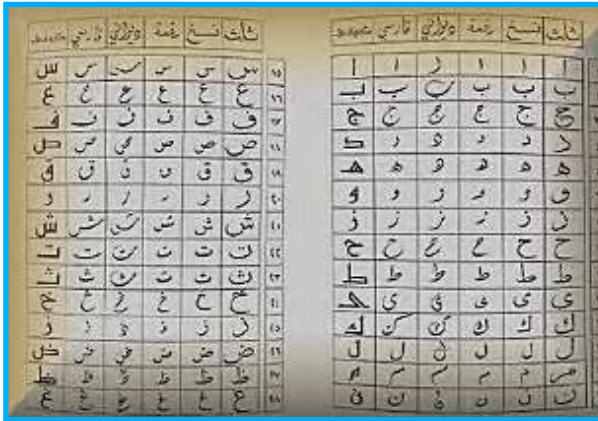 ثلث نسخ رقعة ديواني فارسي
ا ا ا ا ا ا
ب ب ب ب ب ب
ج ج ج ج ج ج
د د د د د د
ه ه ه ه ه ه
و و و و و و
ز ز ز ز ز ز
ح ح ح ح ح ح
ط ط ط ط ط ط
ي ي ي ي ي ي
ك ك ك ك ك ك
ل ل ل ل ل ل
م م م م م م
ن ن ن ن ن ن
ثلث نسخ رقعة ديواني فارسي
١٥ س س س س س س
١٦ ع ع ع ع ع ع
١٧ ف ف ف ف ف ف
١٨ ص ص ص ص ص ص
١٩ ق ق ق ق ق ق
٢٠ ر ر ر ر ر ر
٢١ ش ش ش ش ش ش
٢٢ ت ت ت ت ت ت
٢٣ ث ث ث ث ث ث
٢٤ خ خ خ خ خ خ
٢٥ ذ ذ ذ ذ ذ ذ
٢٦ ض ض ض ض ض ض
٢٧ ظ ظ ظ ظ ظ ظ
٢٨ غ غ غ غ غ غ